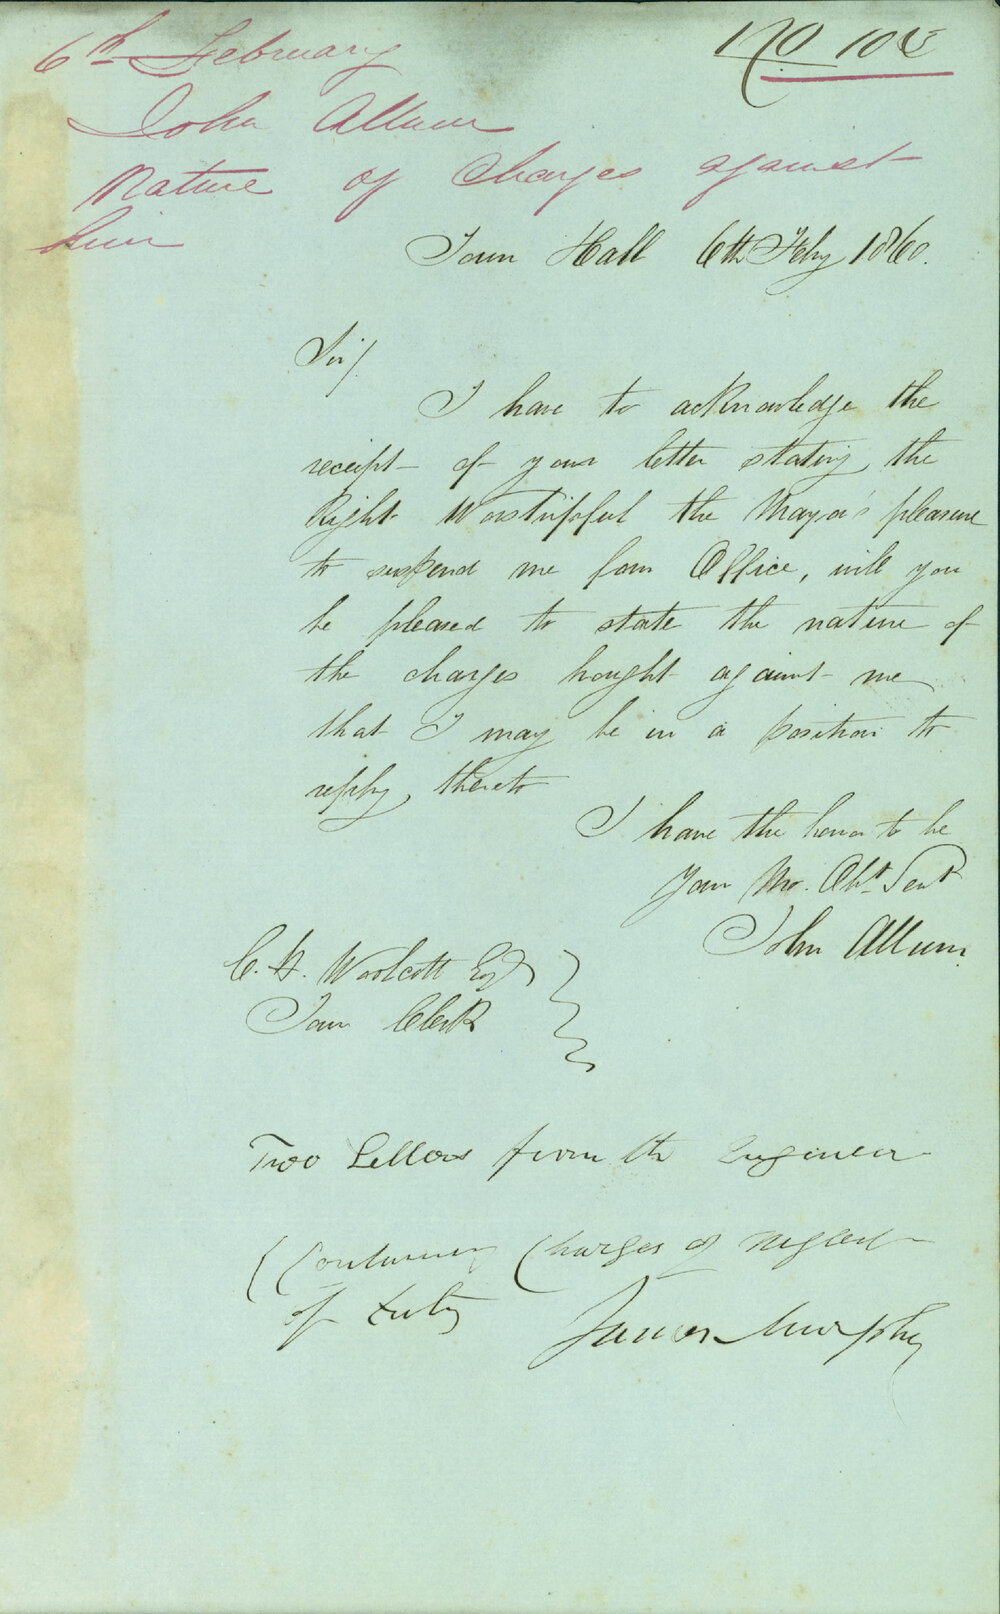 6th February
No 106
John Allum
Nature of Charges against
him
Town Hall 6th Feby 1860.
Sir/
I have to acknowledge the
receipt of your letter stating the
Right Worshipful the Mayor's pleasure
to suspend me from Office, will you
be pleased to state the nature of
the charges brought against me
that I may be in a position to
reply thereto
I have the honor to be
Your Mo. Obt. Servt
John Allum.
C. H. Woolcott Esq
Town Clerk
Two Letters from the Engineer
(Containing Charges of Neglect
of duty
James Murphy